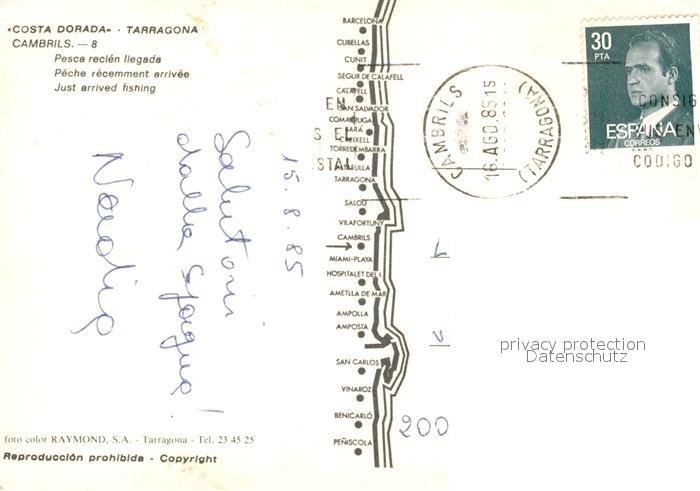 «COSTA DORADA» - TARRAGONA
CAMBRILS. — 8
Pesca recién llegada
Pêche récemment arrivée
Just arrived fishing
15.8.85
Salutoni
dalla Spagna!
Nadia
foto color RAYMOND, S.A. - Tarragona - Tel. 23 45 25
Reproducción prohibida - Copyright
BARCELONA
CUBELLAS
CUNIT
SEGUR DE CALAFELL
CALAFELL
SAN SALVADOR
COMARRUGA
BARÁ
CREIXELL
TORREDEMBARRA
ALTAFULLA
TARRAGONA
SALOU
VILAFORTUNY
CAMBRILS
MIAMI-PLAYA
HOSPITALET DEL I.
AMETLLA DE MAR
AMPOLLA
AMPOSTA
SAN CARLOS
VINAROZ
BENICARLÓ
PEÑISCOLA
EN
S EL
STAL
CAMBRILS
16.AGO.85 15
(TARRAGONA)
30
PTA
ESPAÑA
CORREOS
F.N.M.T.
CONSIG
EN
CODIGO
L
V
200
privacy protection
Datenschutz